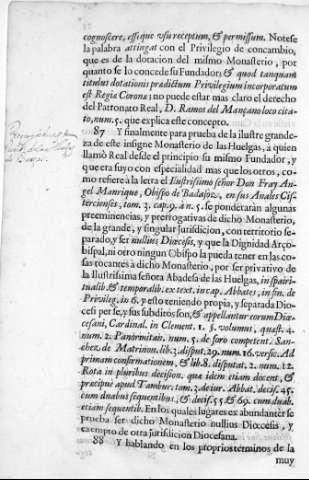 cognoscere, esse que usu receptum, & permissum. Notese
la palabra attingat con el Privilegio de concambio,
que es de la dotacion del mismo Monasterio, por
quanto se lo concede su Fundador; & quod tanquam
titulus dotationis prædictum Privilegium incorporatum
est Regia Corona; no puede estar mas claro el derecho
del Patronato Real, D. Ramos del Mançano loco cita-
to, num. 5. que explica este concepto.
87 Y finalmente para prueba de la ilustre grande-
za de este insigne Monasterio de las Huelgas, à quien
llamò Real desde el principio su mismo Fundador, y
que era suyo con especialidad mas que los otros, co-
mo refiere à la letra el Ilustrissimo señor Don Fray An-
gel Manrique, Obispo de Badajoz, en sus Anales Cis-
terciensis, tom. 3. cap. 9. à n. 5. se ponderaràn algunas
preeminencias, y prerrogativas de dicho Monasterio,
de la grande, y singular Jurisdicion, con territorio se-
parado, y ser nullius Diœcesis, y que la Dignidad Arço-
bispal, ni otro ningun Obispo la pueda tener en las co-
sas tocantes à dicho Monasterio, por ser privativo de
la Ilustrissima señora Abadesa de las Huelgas, in spiri-
tualib. & temporalib. ex text. in cap. Abbates, in fin. de
Privileg. in 6. y esto teniendo propia, y separada Dio-
cesi per se, y sus subditos son, & appellantur eorum Diœ-
cesani, Cardinal. in Clement. 1. §. volumus, quæst. 4.
num. 2. Panormitan. num. 5. de foro competent. San-
chez. de Matrimon. lib. 3. disput. 29. num. 16. verse. Ad
primam confirmationem, & lib. 8. disputat. 2. num. 12.
Rota in pluribus decision. qua idem etiam docent, &
præcipuè apud Tambur. tom. 2. de iur. Abbat. decis. 45.
cum duabus sequentibus, & decis. 55 & 69. cum duab.
etiam sequentib. En los quales lugares ex abundanter se
prueba ser dicho Monasterio nullius Diœcesis, y
exempto de otra jurisdicion Diocesana.
88 Y hablando en los propios terminos de la
muy